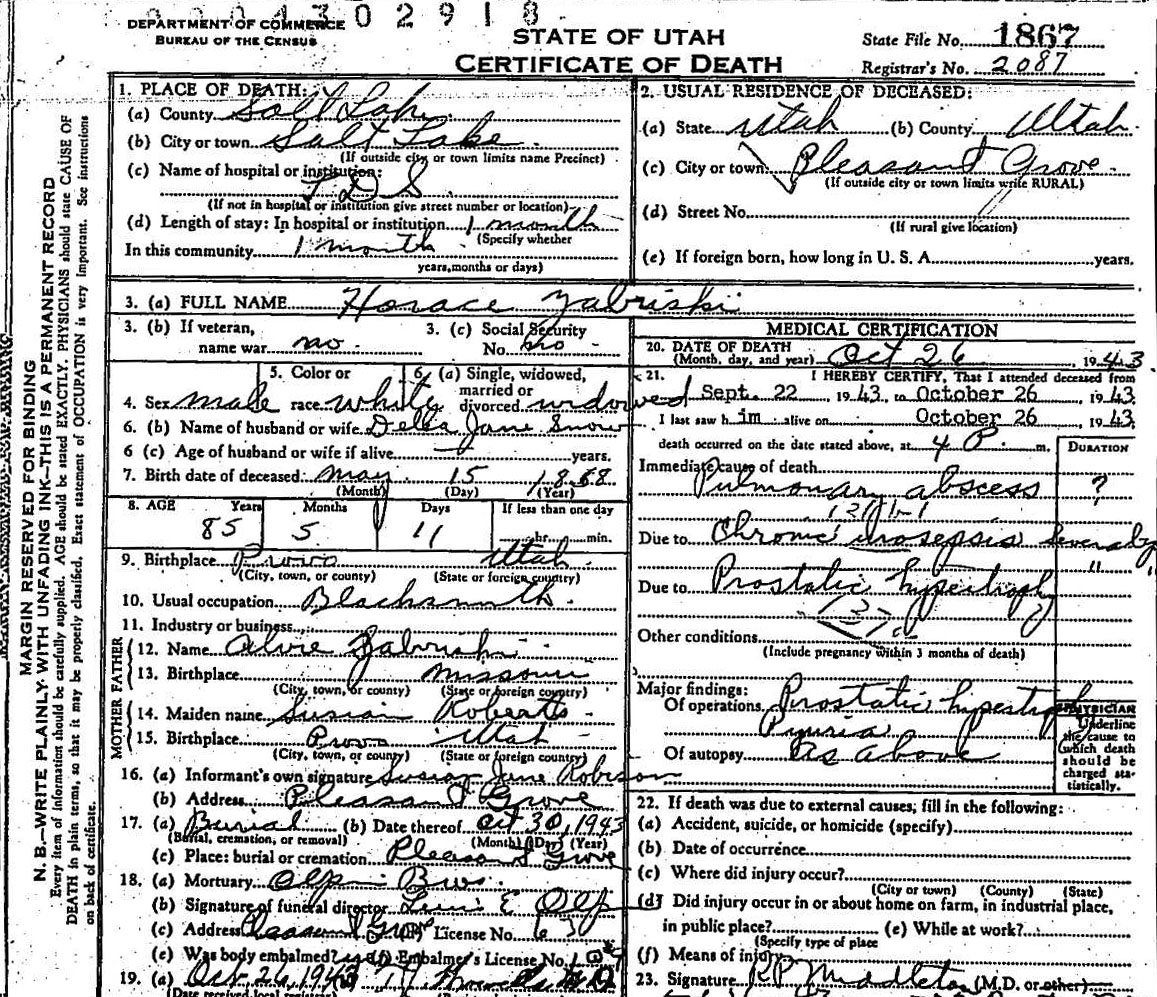 DEPARTMENT OF COMMERCE
BUREAU OF THE CENSUS
STATE OF UTAH
CERTIFICATE OF DEATH
State File No. 1867
Registrar's No. 2087
MARGIN RESERVED FOR BINDING
N. B.—WRITE PLAINLY WITH UNFADING INK—THIS IS A PERMANENT RECORD
Every item of information should be carefully supplied. AGE should be stated EXACTLY. PHYSICIANS should state CAUSE OF
DEATH in plain terms, so that it may be properly classified. Exact statement of OCCUPATION is very important. See instructions
on back of certificate.
1. PLACE OF DEATH:
(a) County Salt Lake
(b) City or town Salt Lake
(If outside city or town limits name Precinct)
(c) Name of hospital or institution:
L D S
(If not in hospital or institution give street number or location)
(d) Length of stay: In hospital or institution 1 month
(Specify whether
In this community 1 month
years, months or days)
2. USUAL RESIDENCE OF DECEASED:
(a) State Utah (b) County Utah
(c) City or town Pleasant Grove
(If outside city or town limits write RURAL)
(d) Street No.
(If rural give location)
(e) If foreign born, how long in U. S. A. years.
3. (a) FULL NAME Horace Zabriski
3. (b) If veteran, name war no
3. (c) Social Security No. no
4. Sex male
5. Color or race white
6. (a) Single, widowed, married or divorced widowed
6. (b) Name of husband or wife Della Jane Snow
6 (c) Age of husband or wife if alive years.
7. Birth date of deceased: May 15
(Month) (Day) (Year)
8. AGE Years Months Days If less than one day
85 5 11 hr. min.
9. Birthplace Provo Utah
(City, town, or county) (State or foreign country)
10. Usual occupation Blacksmith
11. Industry or business
FATHER
12. Name Alvie Zabriski
13. Birthplace Missouri
(City, town, or county) (State or foreign country)
MOTHER
14. Maiden name Susian Roberts
15. Birthplace Provo Utah
(City, town, or county) (State or foreign country)
16. (a) Informant's own signature Susian June Robison
(b) Address Pleasant Grove
17. (a) Burial (b) Date thereof Oct 30, 1943
(Burial, cremation, or removal) (Month) (Day) (Year)
(c) Place: burial or cremation Pleasant Grove
18. (a) Mortuary Olpin Bros.
(b) Signature of funeral director E Olpin
(c) Address Pleasant Grove License No. 63
(e) Was body embalmed? yes (f) Embalmer's License No.
19. (a) Oct 26, 1943
(Date received local registrar)
MEDICAL CERTIFICATION
20. DATE OF DEATH
(Month, day, and year) Oct 26 1943
21. I HEREBY CERTIFY, That I attended deceased from
Sept. 22 1943, to October 26, 1943
I last saw him alive on October 26, 1943
death occurred on the date stated above, at 4 P. m.
DURATION
Immediate cause of death
Pulmonary abscess ?
Due to Chronic urosepsis Several y
Due to Prostatic hypertrophy "
Other conditions
(Include pregnancy within 3 months of death)
Major findings:
Of operations Prostatic hypertroph
Pyuria
Of autopsy as above
PHYSICIAN
Underline
the cause to
which death
should be
charged sta-
tistically.
22. If death was due to external causes, fill in the following:
(a) Accident, suicide, or homicide (specify)
(b) Date of occurrence
(c) Where did injury occur?
(City or town) (County) (State)
(d) Did injury occur in or about home on farm, in industrial place,
in public place? (e) While at work?
(Specify type of place
(f) Means of injury
23. Signature R P Middleton (M.D. or other)